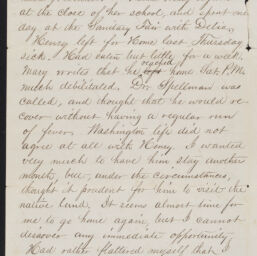 at the close of her school, and spent one
day at the Sanitary Fair with Delia.
Henry left for Home last Thursday
sick. Had eaten but little for a week.
Mary writes that he reached home Sat. P.M.
much debilitated. Dr Spellman was
called, and thought that he would re-
cover without having a regular run
of fever. Washington life did not
agree at all with Henry. I wanted
very much to have him stay another
month, but, under the circumstances,
thought it prudent for him to visit the
native land. It seems almost time for
me to go home again, but I cannot
discover any immediate opportunity.
Had rather flattered myself that I